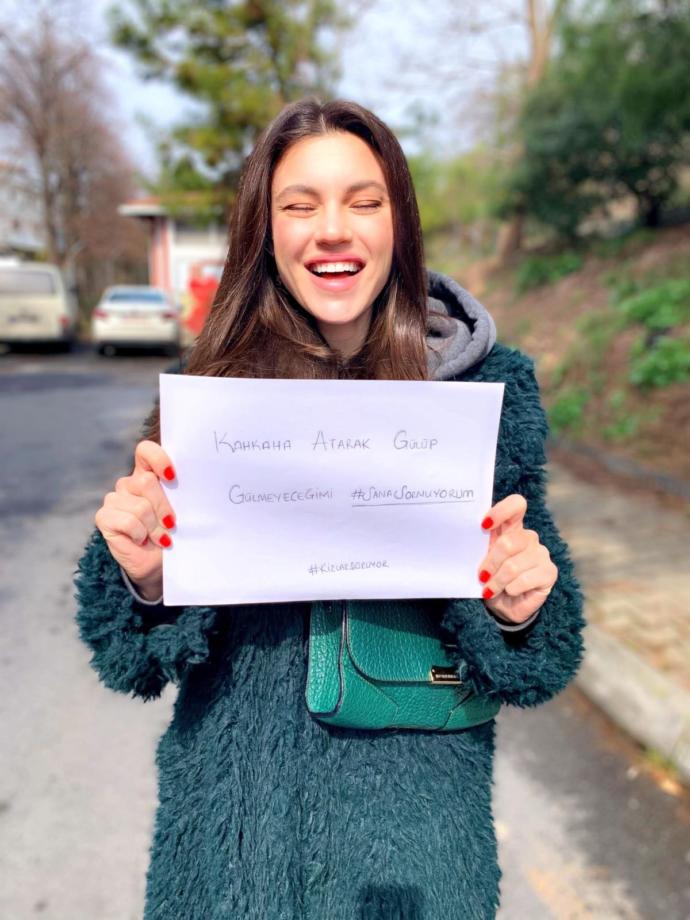 KAHKAHA ATARAK GÜLÜP
GÜLMEYECEĞİMİ #SANASORMUYORUM
#KIZLARSORUYOR